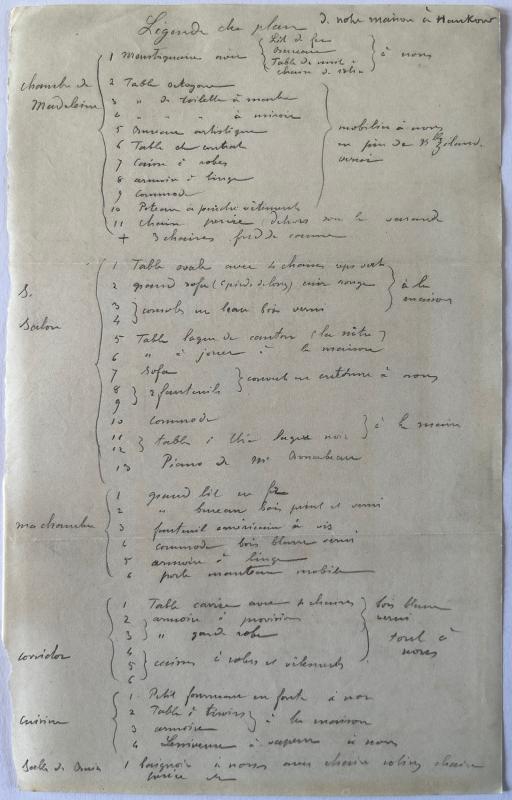 Légende du plan d. notre maison à Hankow
chambre de Madeleine
1 Moustiquaire avec { Lit de fer
Bureau
Table de nuit
chaise de } à nous
2 Table octogone
3 " de toilette à marbre
4 " " à miroir
5 Bureau artistique
6 Table
7 Caisse à robes
8 armoire à linge
9 commode
10 Poteau à pendre vêtements
mobilier à nous
en pin de Nlle Zéland.
verni
11 Chaise percée dehors sur la varande
+ 3 chaises fond de canne
S.
Salon
1 Table ovale avec 4 chaises
2 grand sofa ( ) cuir rouge
à la maison
3
4 } consoles en beau bois verni
5 Table laque de canton (la nôtre)
6 " à jouer à la maison
7 Sofa
8
9 } 2 fauteuils
couvert en cretonne à nous
10 commode
11
12 } table à thé laque noir
à la maison
13 Piano de Mr
ma chambre
1 grand lit en fer
2 " bureau bois peint et verni
3 fauteuil américain à vis
4 commode bois blanc verni
5 armoire à linge
6 porte manteau mobile
corridor
1 Table carrée avec 4 chaises
2 armoire à provisions
3 " garde robe
4
5
6 } caisses à robes et vêtements
bois blanc
verni
tout à
nous
cuisine
1 Petit fourneau en fonte à nous
2 Table à tiroirs
3 armoire
à la maison
4 Lessiveuse à vapeur à nous
Salle de bain 1 baignoire à nous avec chaise chaise
percée